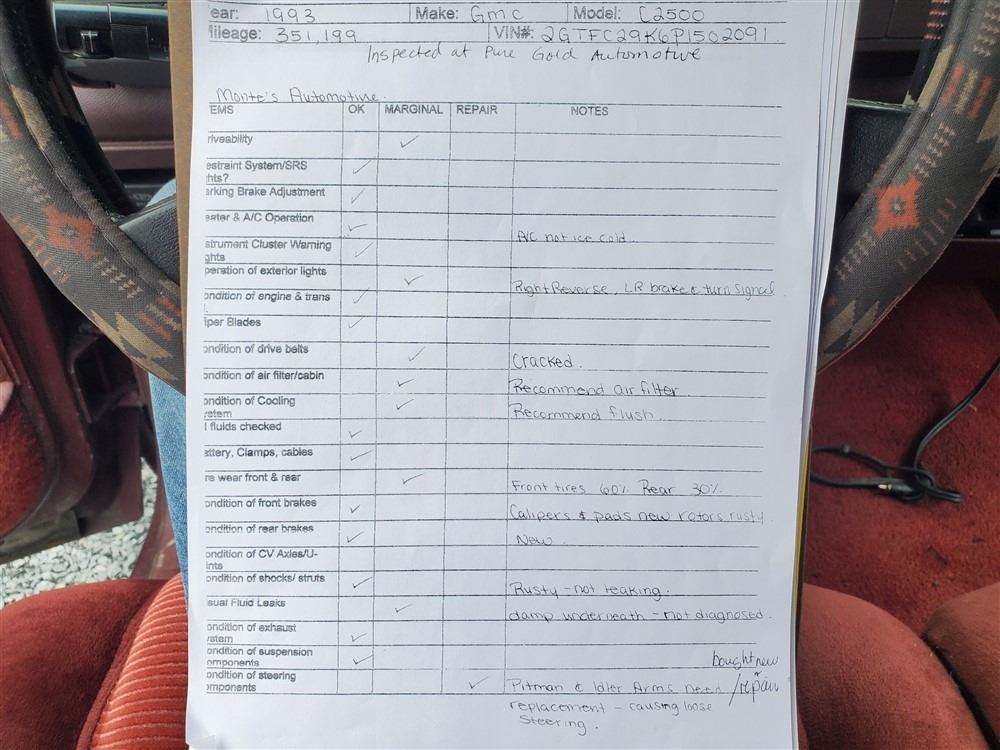 ear: 1993 Make: Gmc Model: C2500
ileage: 351,199 VIN#: 2GTFC29K6P1502091
Inspected at Pure Gold Automotive
Monte's Automotive
EMS OK MARGINAL REPAIR NOTES
riveability ✓
estraint System/SRS ✓
hts?
arking Brake Adjustment ✓
eater & A/C Operation ✓ A/C not ice cold
strument Cluster Warning ✓
ghts
peration of exterior lights ✓ Right Reverse, LR brake & turn signal
ondition of engine & trans ✓
iper Blades ✓
ondition of drive belts ✓ Cracked.
ondition of air filter/cabin ✓ Recommend air filter
ondition of Cooling ✓ Recommend flush
ystem
l fluids checked ✓
attery, Clamps, cables ✓
re wear front & rear ✓ Front tires 60% Rear 30%.
ondition of front brakes ✓ Calipers & pads new rotors rusty
ondition of rear brakes ✓ New
ondition of CV Axles/U-
ints
ondition of shocks/ struts ✓ Rusty - not leaking.
sual Fluid Leaks ✓ damp underneath - not diagnosed.
ondition of exhaust ✓
ystem
ondition of suspension ✓ bought new
omponents
ondition of steering ✓ Pitman & Idler Arms need / repair
omponents
replacement - causing loose
Steering.